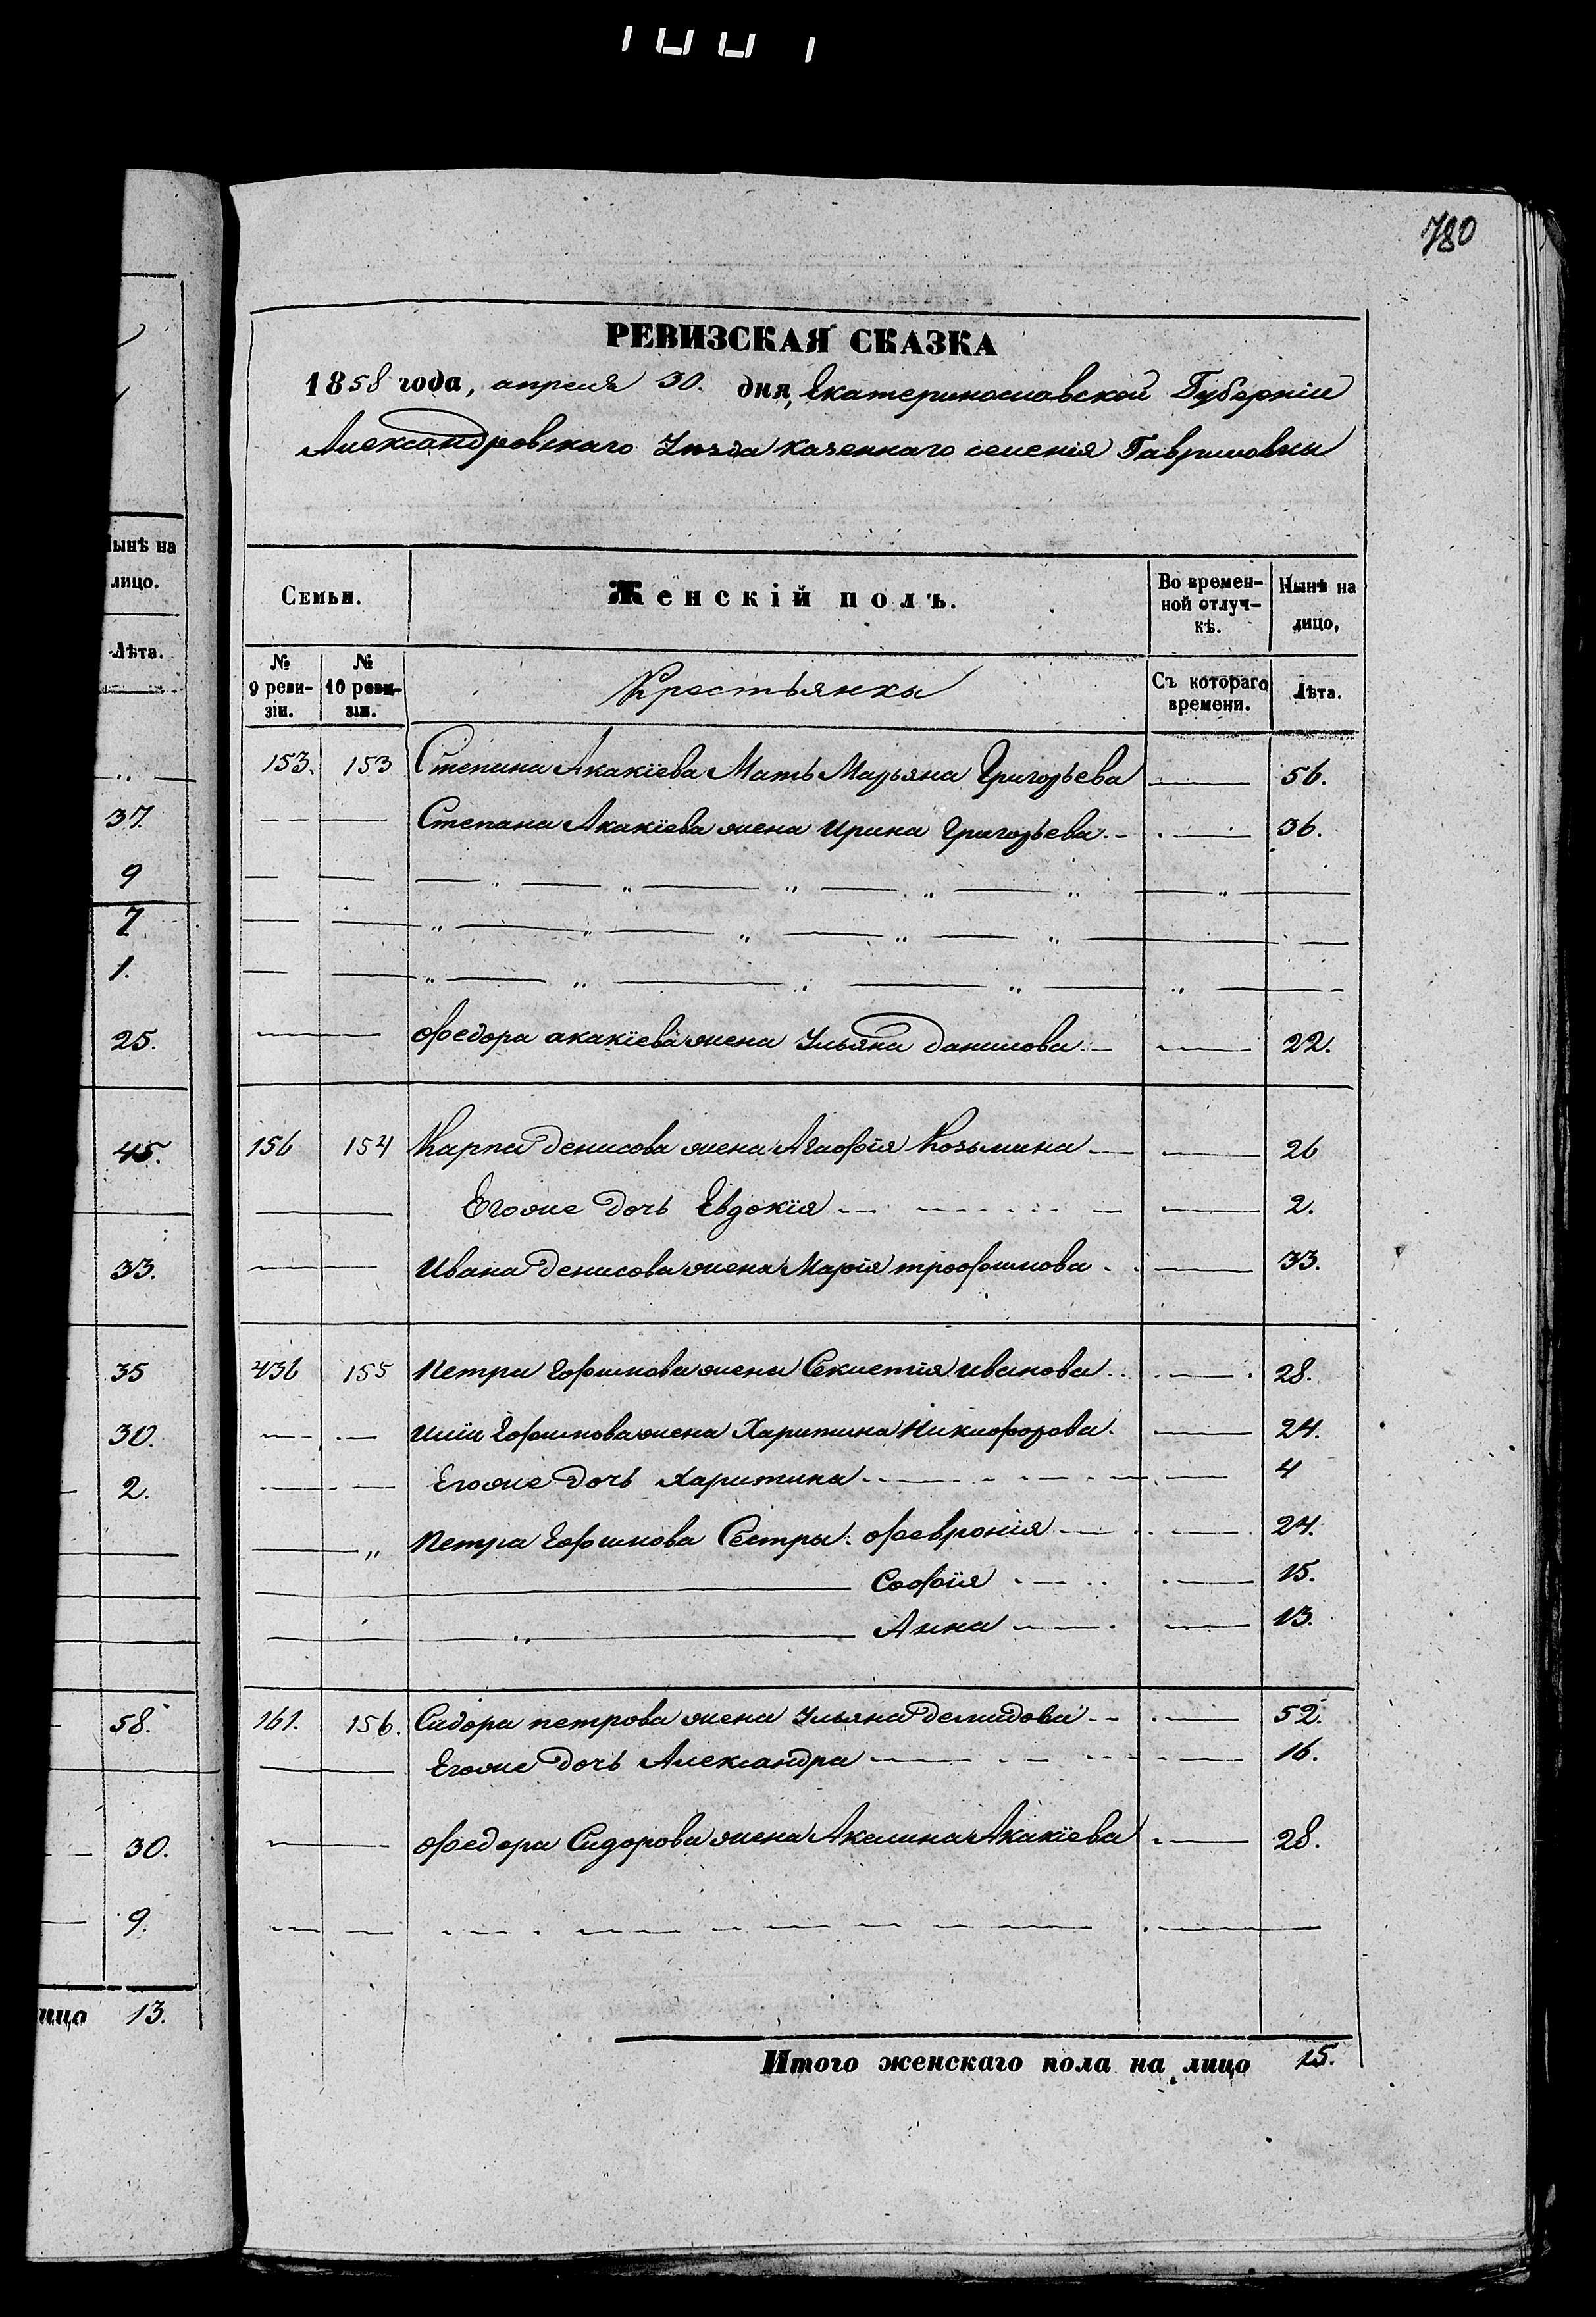 780
РЕВИЗСКАЯ СКАЗКА
1858 года, апреля 30. дня, Екатеринославской Губерніи
Александровскаго Уѣзда казеннаго селенія Гавриловки
Семьи.
Женскій полъ.
Во времен-
ной отлуч-
кѣ.
Нынѣ на
лицо,
№
9 реви-
зіи.
№
10 реви-
зіи.
Крестьянки
Съ котораго
времени.
Лѣта.
153. 153 Степана Акакіева Мать Марьяна Григорьева 56.
Степана Акакіева жена Ирина Григорьева 36.
Федора акакіева жена Ульяна Данилова 22.
156 154 Карпа Денисова жена Агафія Козьмина 26
Егоже дочь Евдокія 2.
Ивана Денисова жена Марія трофимова 33.
436 155 Петра Ефимова жена Секлетія иванова 28.
Иліи Ефимова жена Харитина Никифорова 24.
Егоже дочь Харитина 4
Петра Ефимова Сестры: Февронія 24.
Софія 15.
Анна 13.
161. 156. Сидора петрова жена Ульяна Демидова 52.
Егоже дочь Александра 16.
Федора Сидорова жена Акелина Акакіева 28.
Итого женскаго пола на лицо 15.
ынѣ на
лицо.
Лѣта.
37.
9
7
1.
25.
45.
33.
35
30.
2.
58.
30.
9.
ицо 13.